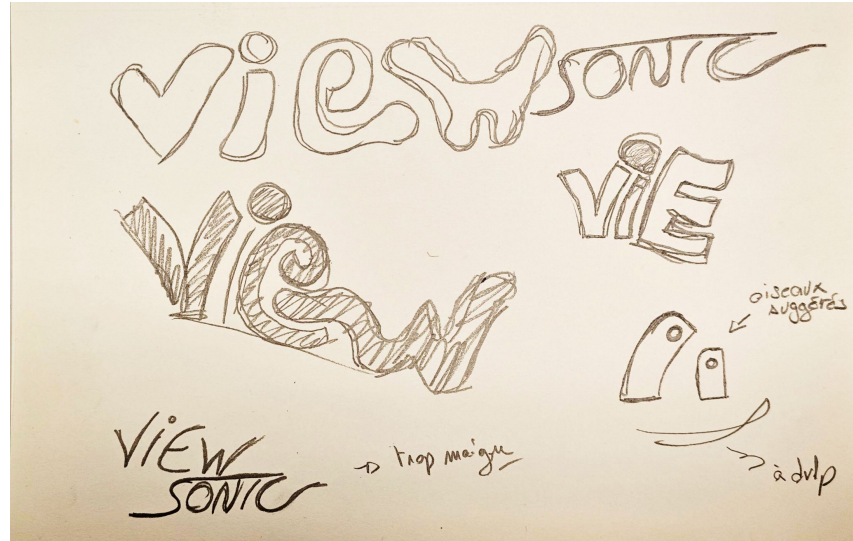 View SONIC
ViE
View
oiseaux
suggérés
ViEW
SONIC
trop maigre
à dvlp